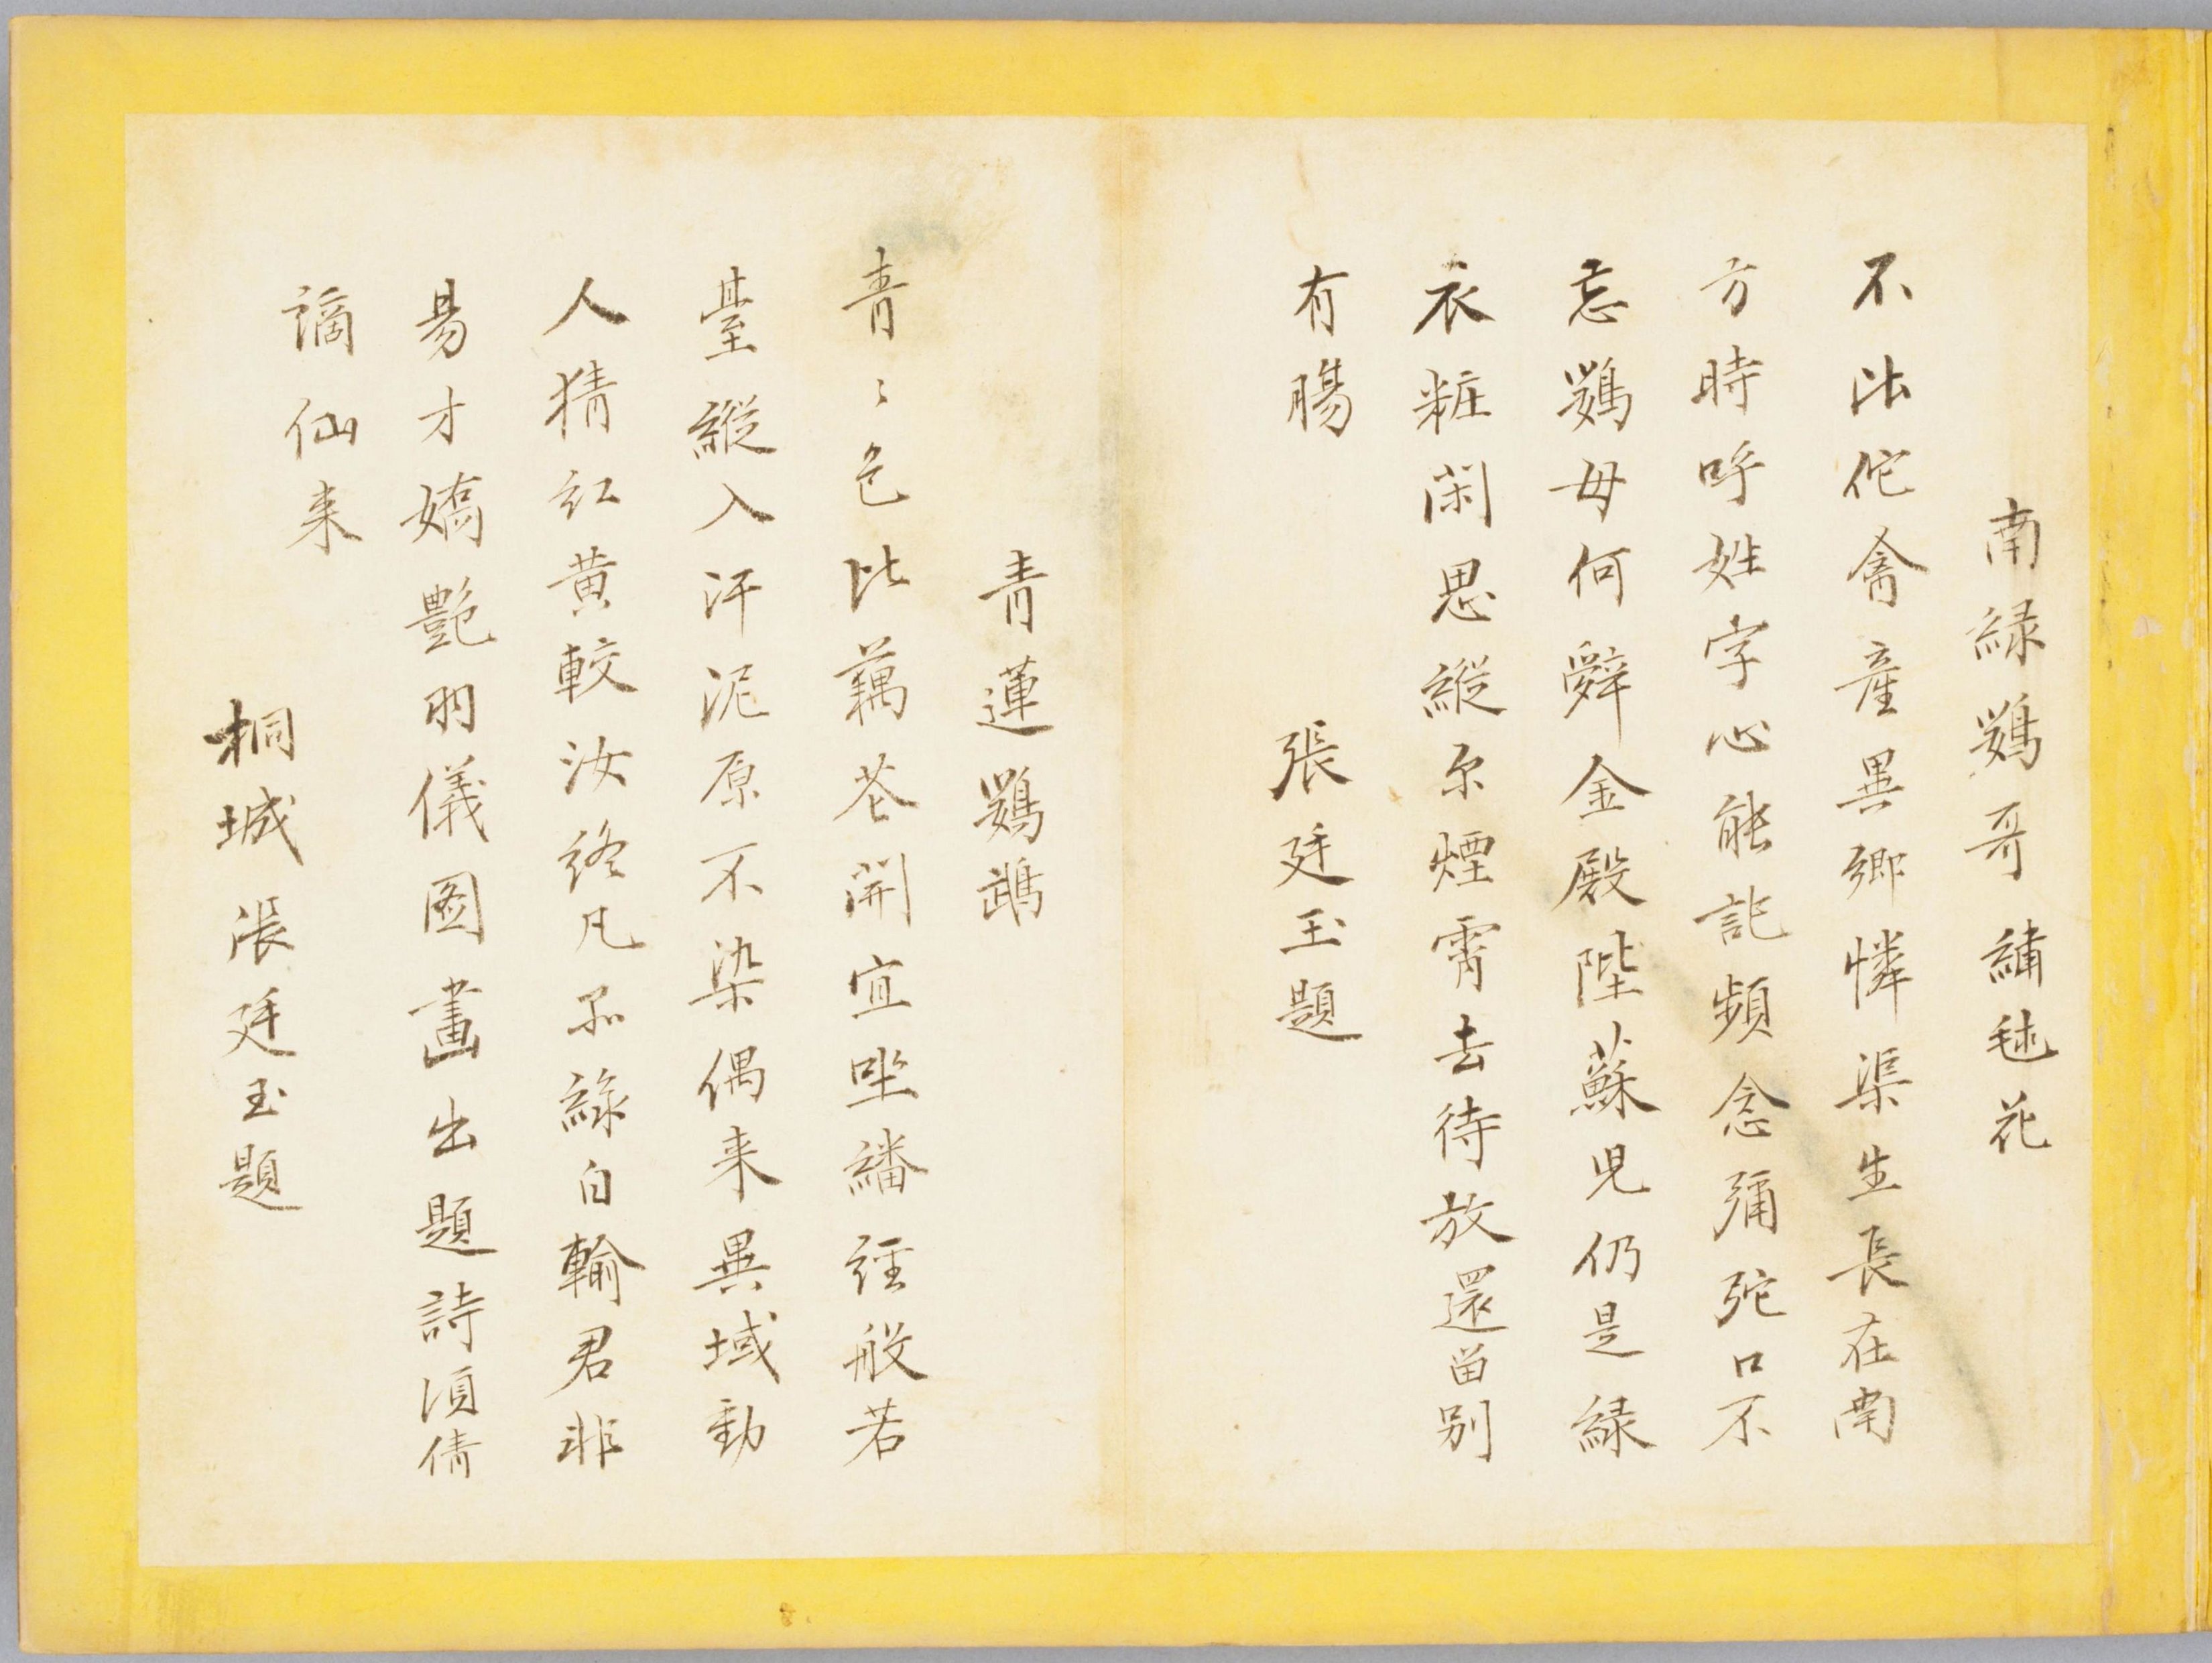 南緑鸚哥 繡毬花
不比佗禽產異鄉憐渠生長在南
方時呼姓字心能記頻念彌陀口不
忘鸚母何辭金殿陛蘇兒仍是緑
衣粧閑思縱尔煙霄去待放還留别
有腸
張廷玉題
青蓮鸚鵡
青〻色比藕花開宜唑繙經般若
臺縱入汙泥原不染偶来異域動
人猜紅黄較汝終凡品緑白輸君非
易才嬌艷羽儀圖畫出題詩須倩
謫仙来
桐城張廷玉題